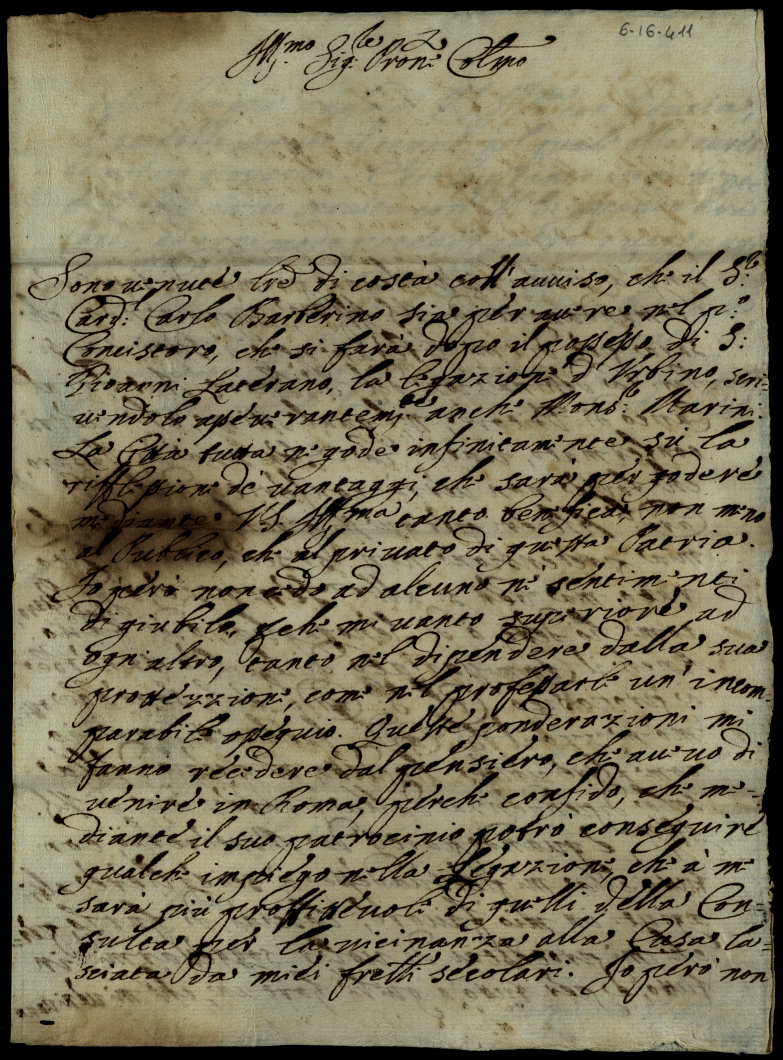 6-16-411
Ill.mo Sig.re Pron.e Col.mo
Sono uenute lre di costà coll' auuiso, che il S.r
Card.l Carlo Barberino sia per auere nel p.o
Concistoro, che si farà dopo il possesso di S:
Giouanni Laterano, la legazione d'Vrbino, scri-
uendolo anche Mons.r Marini.
La Città tutta ne gode infinitamente sù la
riflessione de uantaggi, che sarà per godere
mediante VS. Ill.ma tanto benefica, non meno
al Publico, che al priuato di questa Patria.
Io però non cedo ad alcuno ne sentimenti
di giubilo, perche mi uanto superiore ad
ogn'altro, tanto nel dipendere dalla sua
protezzione, come nel professarle un' incom-
parabile ossequio. Queste ponderazioni mi
fanno recedere dal pensiero, che aueuo di
uenire in Roma, perche confido, che me-
diante il suo patrocinio potrò conseguire
qualche impiego nella Legazione, che à me
sarà più profitteuole di quelli della Con-
sulta per la uicinanza alla Casa la-
sciata da miei fretli secolari. Io però non